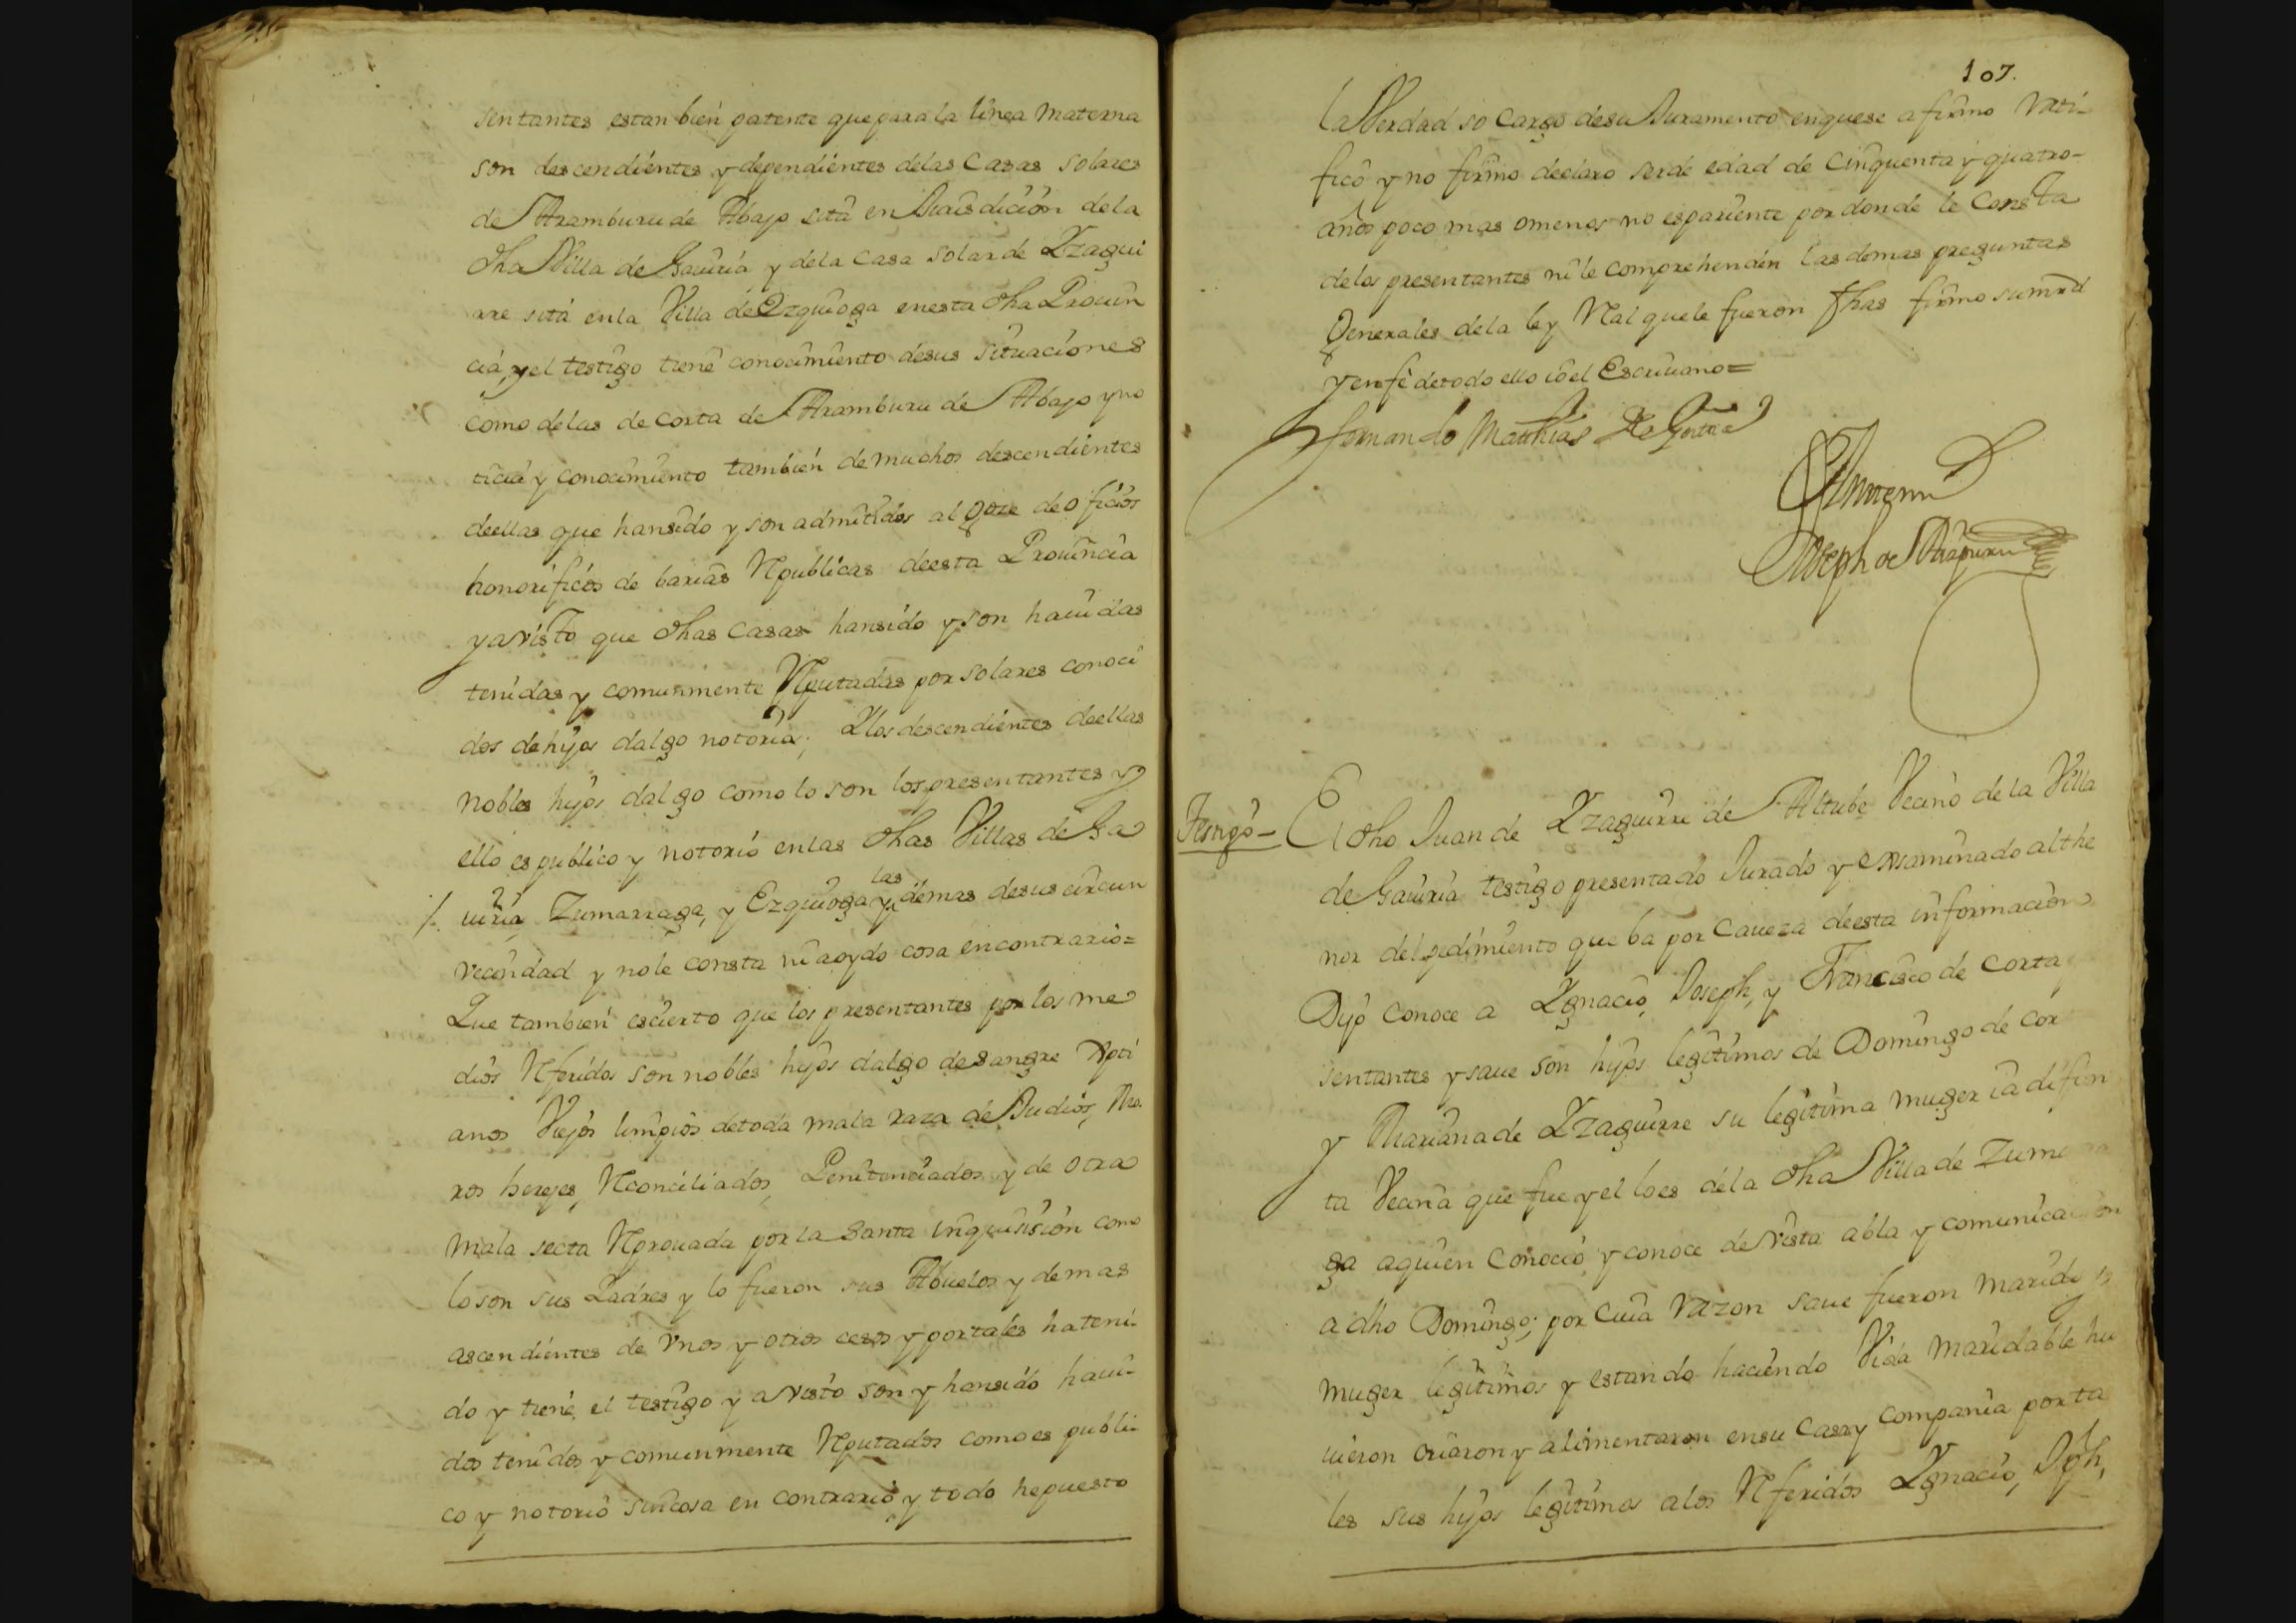 sentantes estan bien patente que para la linea Materna
son descendientes y dependientes delas Casas Solares
de Aramburu de Abajo sita en Jurisdicion dela
dha Villa de Gauiria y dela Casa Solar de Yzagui
rre sita enla Villa de Ezquioga enesta dha Prouin
cia, y el testigo tiene conocimiento desus situaciones
como delas de Corta de Aramburu de Abajo y no
ticia y conocimiento tambien de muchos descendientes
deellas que hansido y son admitidos al goze de oficios
honorificos de barias Rpublicas deesta Prouincia
y a visto que dhas Casas hansido y son hauidas
tenidas y comunmente Rputadas por solares conoci
dos de hijos dalgo notoria; Ylos descendientes deellas
nobles hijos dalgo como lo son los presentantes y
ello es publico y notorio enlas dhas Villas de Ga
uiria, Zumarraga, y Ezquioga y las demas desus circun
vecindad y nole consta ni a oydo cosa encontrario=
Que tambien escierto que los presentantes por los me
dios Rferidos son nobles hijos dalgo de sangre Xpti
anos Viejos limpios detoda mala raza de Judios, Mo
ros herejes, Rconciliados, Penitenciados y de otra
mala secta Rprouada por la Santa inquisision como
lo son sus Padres y lo fueron sus Abuelos y demas
ascendientes de Vnos y otros cesos y portales hateni-
do y tiene el testigo y a visto son y hansido haui-
dos tenidos y comunmente Rputados como es publi-
co y notorio sin cosa en contrario y todo hepuesto
107.
la Verdad so cargo desu Juramento enquese afirmo Rati-
fico y no firmo declaro serde edad de Cinquenta y quatro-
años poco mas omenos no espariente por donde le Consta
delos presentantes nile comprehenden las demas preguntas
Generales dela ley Ral quele fueron fhas firmo sumrd
y enfe detodo ello io el Escriuano=
Fernando Matthias de
Joseph de
Testigo- El dho Juan de Yzaguirre de Altube Vecino de la Villa
de Gauiria testigo presentado Jurado y exsaminado althe
nor del pedimiento que ba por Caueza deesta informacion
Dijo conoce a Ygnacio, Joseph, y Francisco de Corta
sentantes y saue son hijos legitimos de Domingo de Cor
y Mariana de Yzaguirre su legitima muger ia difun
ta Vecina que fue y el lo es dela dha Villa de Zuma
ga aquien Conocio y conoce de Vista abla y comunicacion
a dho Domingo; por Cuia razon saue fueron Marido y
muger legitimos y estando haciendo Vida Maridable hu
uieron criaron y alimentaron ensu Casa y Compania por ta
les sus hijos legitimos alos Rferidos Ygnacio, Jph,